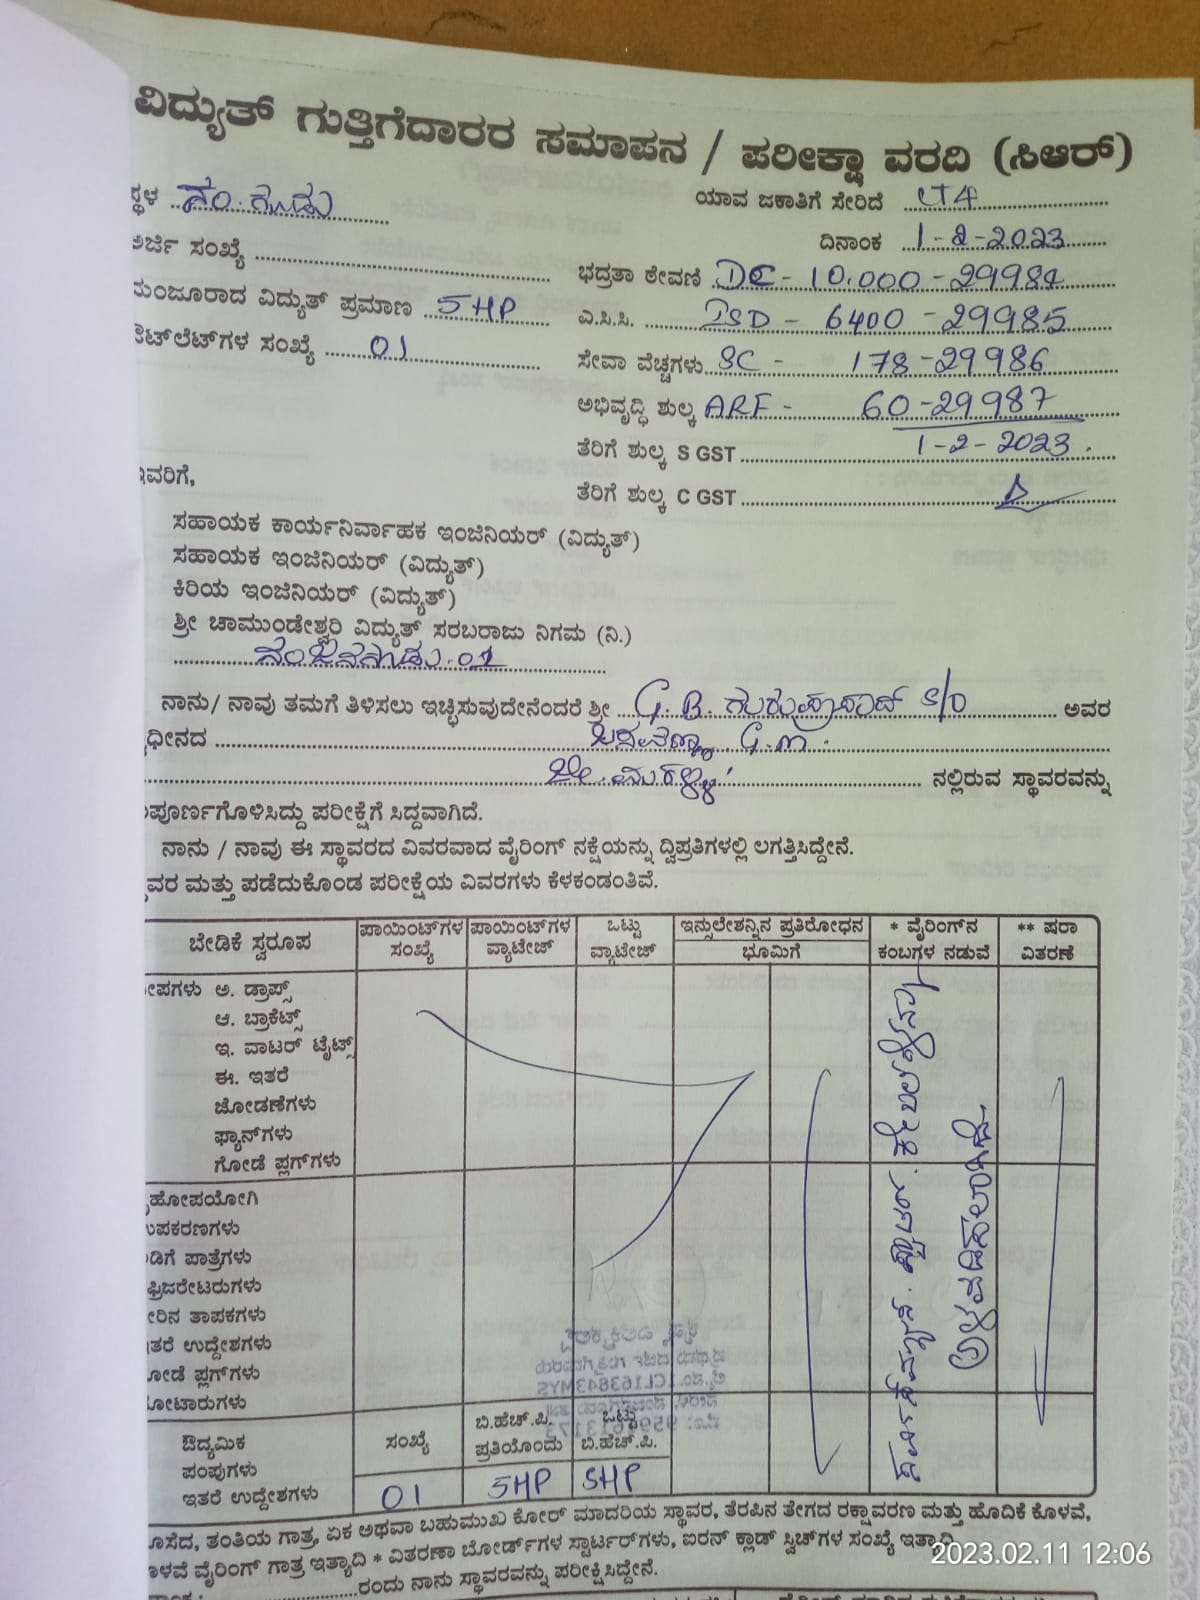 ವಿದ್ಯುತ್ ಗುತ್ತಿಗೆದಾರರ ಸಮಾಪನ / ಪರೀಕ್ಷಾ ವರದಿ (ಸಿಆರ್)
ಸ್ಥಳ ನಂ.ಗೂಡು
ಯಾವ ಜಕಾತಿಗೆ ಸೇರಿದೆ LT4
ದಿನಾಂಕ 1-2-2023
ಅರ್ಜಿ ಸಂಖ್ಯೆ
ಭದ್ರತಾ ಠೇವಣಿ DC - 10,000 - 29984
ಮಂಜೂರಾದ ವಿದ್ಯುತ್ ಪ್ರಮಾಣ 5HP
ಎ.ಸಿ.ಸಿ. ISD - 6400 - 29985
ಔಟ್‌ಲೆಟ್‌ಗಳ ಸಂಖ್ಯೆ 01
ಸೇವಾ ವೆಚ್ಚಗಳು SC - 178-29986
ಅಭಿವೃದ್ಧಿ ಶುಲ್ಕ ARF - 60-29987
ತೆರಿಗೆ ಶುಲ್ಕ S GST 1-2-2023
ಇವರಿಗೆ,
ತೆರಿಗೆ ಶುಲ್ಕ C GST
ಸಹಾಯಕ ಕಾರ್ಯನಿರ್ವಾಹಕ ಇಂಜಿನಿಯರ್ (ವಿದ್ಯುತ್)
ಸಹಾಯಕ ಇಂಜಿನಿಯರ್ (ವಿದ್ಯುತ್)
ಕಿರಿಯ ಇಂಜಿನಿಯರ್ (ವಿದ್ಯುತ್)
ಶ್ರೀ ಚಾಮುಂಡೇಶ್ವರಿ ವಿದ್ಯುತ್ ಸರಬರಾಜು ನಿಗಮ (ನಿ.)
ನಂಜನಗೂಡು.01
ನಾನು/ ನಾವು ತಮಗೆ ತಿಳಿಸಲು ಇಚ್ಛಿಸುವುದೇನೆಂದರೆ ಶ್ರೀ G.B. ಗುರುಪ್ರಸಾದ್ S/O ಅವರ
ಧೀನದ ಬಸವಣ್ಣ G.M.
ನಲ್ಲಿರುವ ಸ್ಥಾವರವನ್ನು
ಪೂರ್ಣಗೊಳಿಸಿದ್ದು ಪರೀಕ್ಷೆಗೆ ಸಿದ್ದವಾಗಿದೆ.
ನಾನು / ನಾವು ಈ ಸ್ಥಾವರದ ವಿವರವಾದ ವೈರಿಂಗ್ ನಕ್ಷೆಯನ್ನು ದ್ವಿಪ್ರತಿಗಳಲ್ಲಿ ಲಗತ್ತಿಸಿದ್ದೇನೆ.
ವರ ಮತ್ತು ಪಡೆದುಕೊಂಡ ಪರೀಕ್ಷೆಯ ವಿವರಗಳು ಕೆಳಕಂಡಂತಿವೆ.
ಬೇಡಿಕೆ ಸ್ವರೂಪ
ಪಾಯಿಂಟ್‌ಗಳ ಸಂಖ್ಯೆ
ಪಾಯಿಂಟ್‌ಗಳ ವ್ಯಾಟೇಜ್
ಒಟ್ಟು ವ್ಯಾಟೇಜ್
ಇನ್ಸುಲೇಶನ್ನಿನ ಪ್ರತಿರೋಧನ
ಭೂಮಿಗೆ
* ವೈರಿಂಗ್‌ನ ಕಂಬಗಳ ನಡುವೆ
** ಷರಾ ವಿತರಣೆ
ಅ. ಡ್ರಾಪ್ಸ್
ಆ. ಬ್ರಾಕೆಟ್ಸ್
ಇ. ವಾಟರ್ ಟೈಟ್ಸ್
ಈ. ಇತರೆ
ಜೋಡಣೆಗಳು
ಫ್ಯಾನ್‌ಗಳು
ಗೋಡೆ ಪ್ಲಗ್‌ಗಳು
ಹೋಪಯೋಗಿ
ಉಪಕರಣಗಳು
ಡಿಗೆ ಪಾತ್ರೆಗಳು
ಫ್ರಿಜರೇಟರುಗಳು
ೀರಿನ ತಾಪಕಗಳು
ಇತರೆ ಉದ್ದೇಶಗಳು
ಗೋಡೆ ಪ್ಲಗ್‌ಗಳು
ಮೋಟಾರುಗಳು
ಔದ್ಯಮಿಕ
ಪಂಪುಗಳು
ಇತರೆ ಉದ್ದೇಶಗಳು
ಸಂಖ್ಯೆ
ಬಿ.ಹೆಚ್.ಪಿ. ಪ್ರತಿಯೊಂದು
ಒಟ್ಟು ಬಿ.ಹೆಚ್.ಪಿ.
01 5HP 5HP
ತಂತಿಯ ಗಾತ್ರ, ಏಕ ಅಥವಾ ಬಹುಮುಖ ಕೋರ್ ಮಾದರಿಯ ಸ್ಥಾವರ, ತೆರಪಿನ ತೇಗದ ರಕ್ಷಾವರಣ ಮತ್ತು ಹೊದಿಕೆ ಕೊಳವೆ,
ಕೊಳವೆ ವೈರಿಂಗ್ ಗಾತ್ರ ಇತ್ಯಾದಿ * ವಿತರಣಾ ಬೋರ್ಡ್‌ಗಳ ಸ್ಟಾರ್ಟರ್‌ಗಳು, ಐರನ್ ಕ್ಲಾಡ್ ಸ್ವಿಚ್‌ಗಳ ಸಂಖ್ಯೆ ಇತ್ಯಾದಿ
ರಂದು ನಾನು ಸ್ಥಾವರವನ್ನು ಪರೀಕ್ಷಿಸಿದ್ದೇನೆ.
2023.02.11 12:06